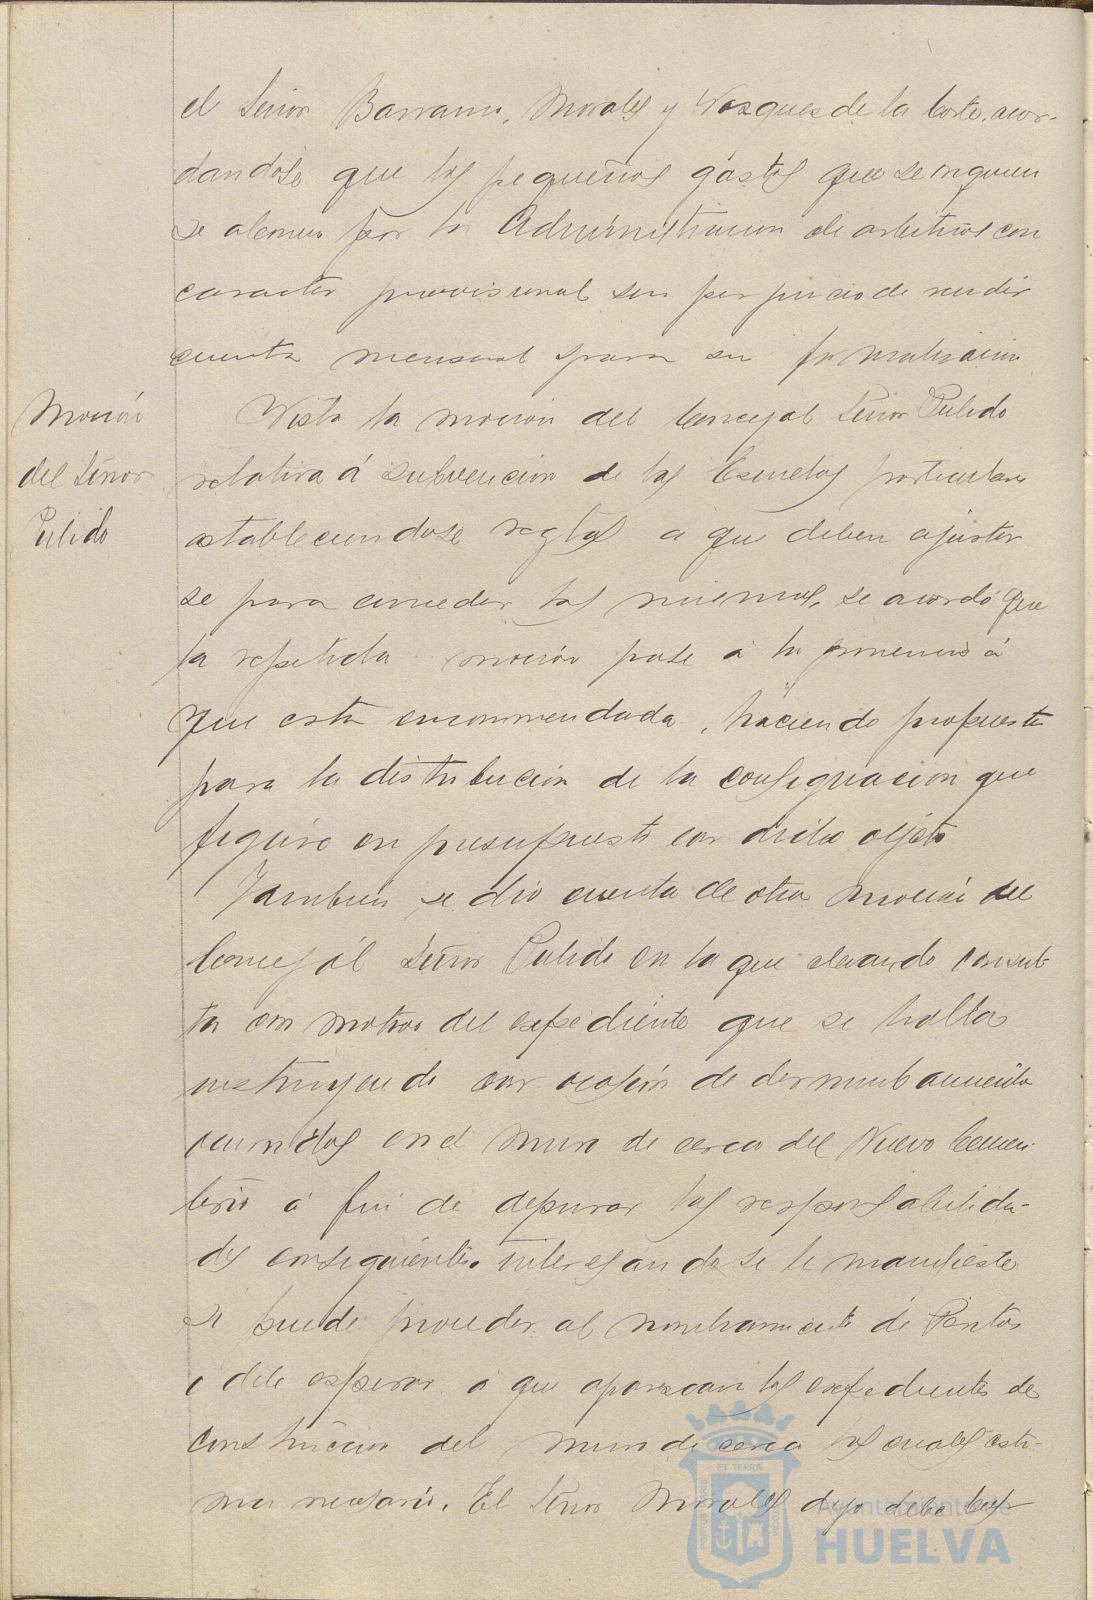 el Señor Barranco, Morales y Vazquez de la Corte, acor-
dandose que los pequeños gastos que se originen
se abonen por la Administracion de arbitrios con
caracter provisional sin perjuicio de rendir
cuenta mensual para su formalizacion
Moción
del Señor
Pulido
Vista la mocion del Concejal Señor Pulido
relativa á subvencion de las Escuelas particulares
estableciendose reglas a que deben ajustar
se para conceder las mismas, se acordó que
la repetida moción pase á la ponencia á
que esta encommendada, haciendo propuesta
para la distribucion de la consignacion que
figura en presupuesto con dicho objeto
Tambien se dio cuenta de otra moción del
Concejál Señor Pulido en la que elevando consul
ta con motivo del expediente que se halla
instruyendo con ocasión de derrumbamiento
ocurridos en el muro de cerca del Nuevo Cemen-
terio á fin de depurar las responsabilida-
des consiguientes, interesando se le manifieste
si puede proceder al nombramiento de Peritos
ó debe esperar á que aparezcan los expedientes de
construccion del muro de cerca los cuales esti-
ma necesario. El Señor Morales dijo debe
EI TERRÆ
Ayuntamiento de
HUELVA